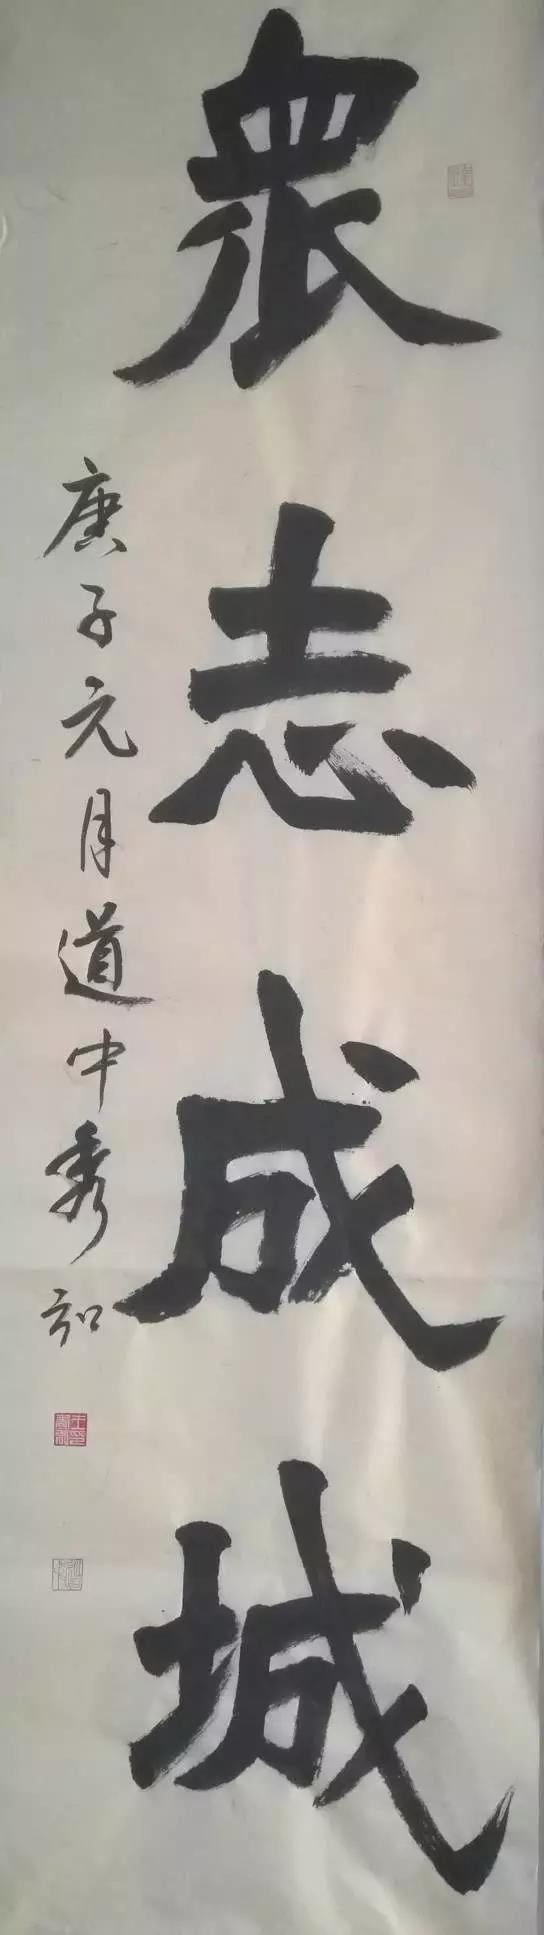 眾志成城
庚子元月道中秀知